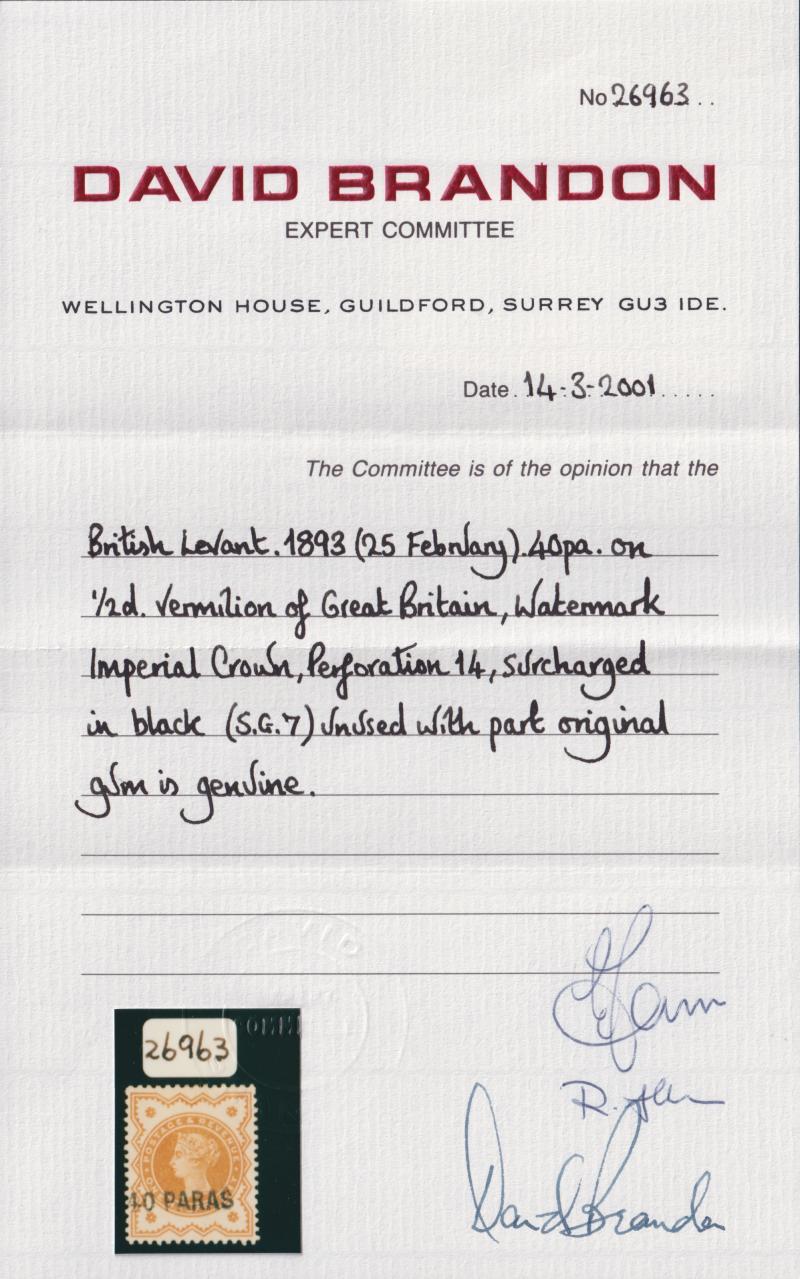 No 26963 . .
DAVID BRANDON
EXPERT COMMITTEE
WELLINGTON HOUSE, GUILDFORD, SURREY GU3 1DE.
Date . 14-3-2001 . . . . .
The Committee is of the opinion that the
British Levant. 1893 (25 February). 40pa. on
1/2d. Vermilion of Great Britain, Watermark
Imperial Crown, Perforation 14, surcharged
in black (S.G.7) unused with part original
gum is genuine.
26963
POSTAGE & REVENUE
40 PARAS
David Brandon